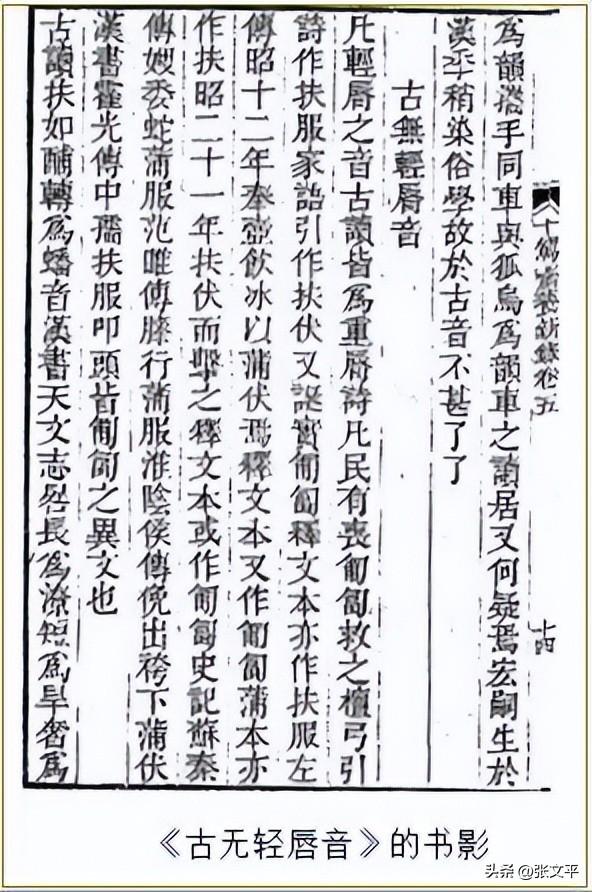 十駕齋養新錄卷五
十四
爲韻攜手同車與狐烏爲韻車之讀居又何疑焉宏嗣生於
漢季稍染俗學故於古音不甚了了
古無輕脣音
凡輕脣之音古讀皆爲重脣詩凡民有喪匍匐救之檀弓引
詩作扶服家語引作扶伏又誕實匍匐釋文本亦作扶服左
傳昭十二年奉壺飲冰以蒲伏焉釋文本又作匍匐蒲本亦
作扶昭二十一年扶伏而擊之釋文本或作匍匐史記蘇秦
傳嫂委蛇蒲服范雎傳膝行蒲服淮陰侯傳俛出袴下蒲伏
漢書霍光傳中孺扶服叩頭皆匍匐之異文也
古讀扶如酺轉爲蟠音漢書天文志晷長爲潦短爲旱奢爲
《古无轻唇音》的书影
头条 @张文平